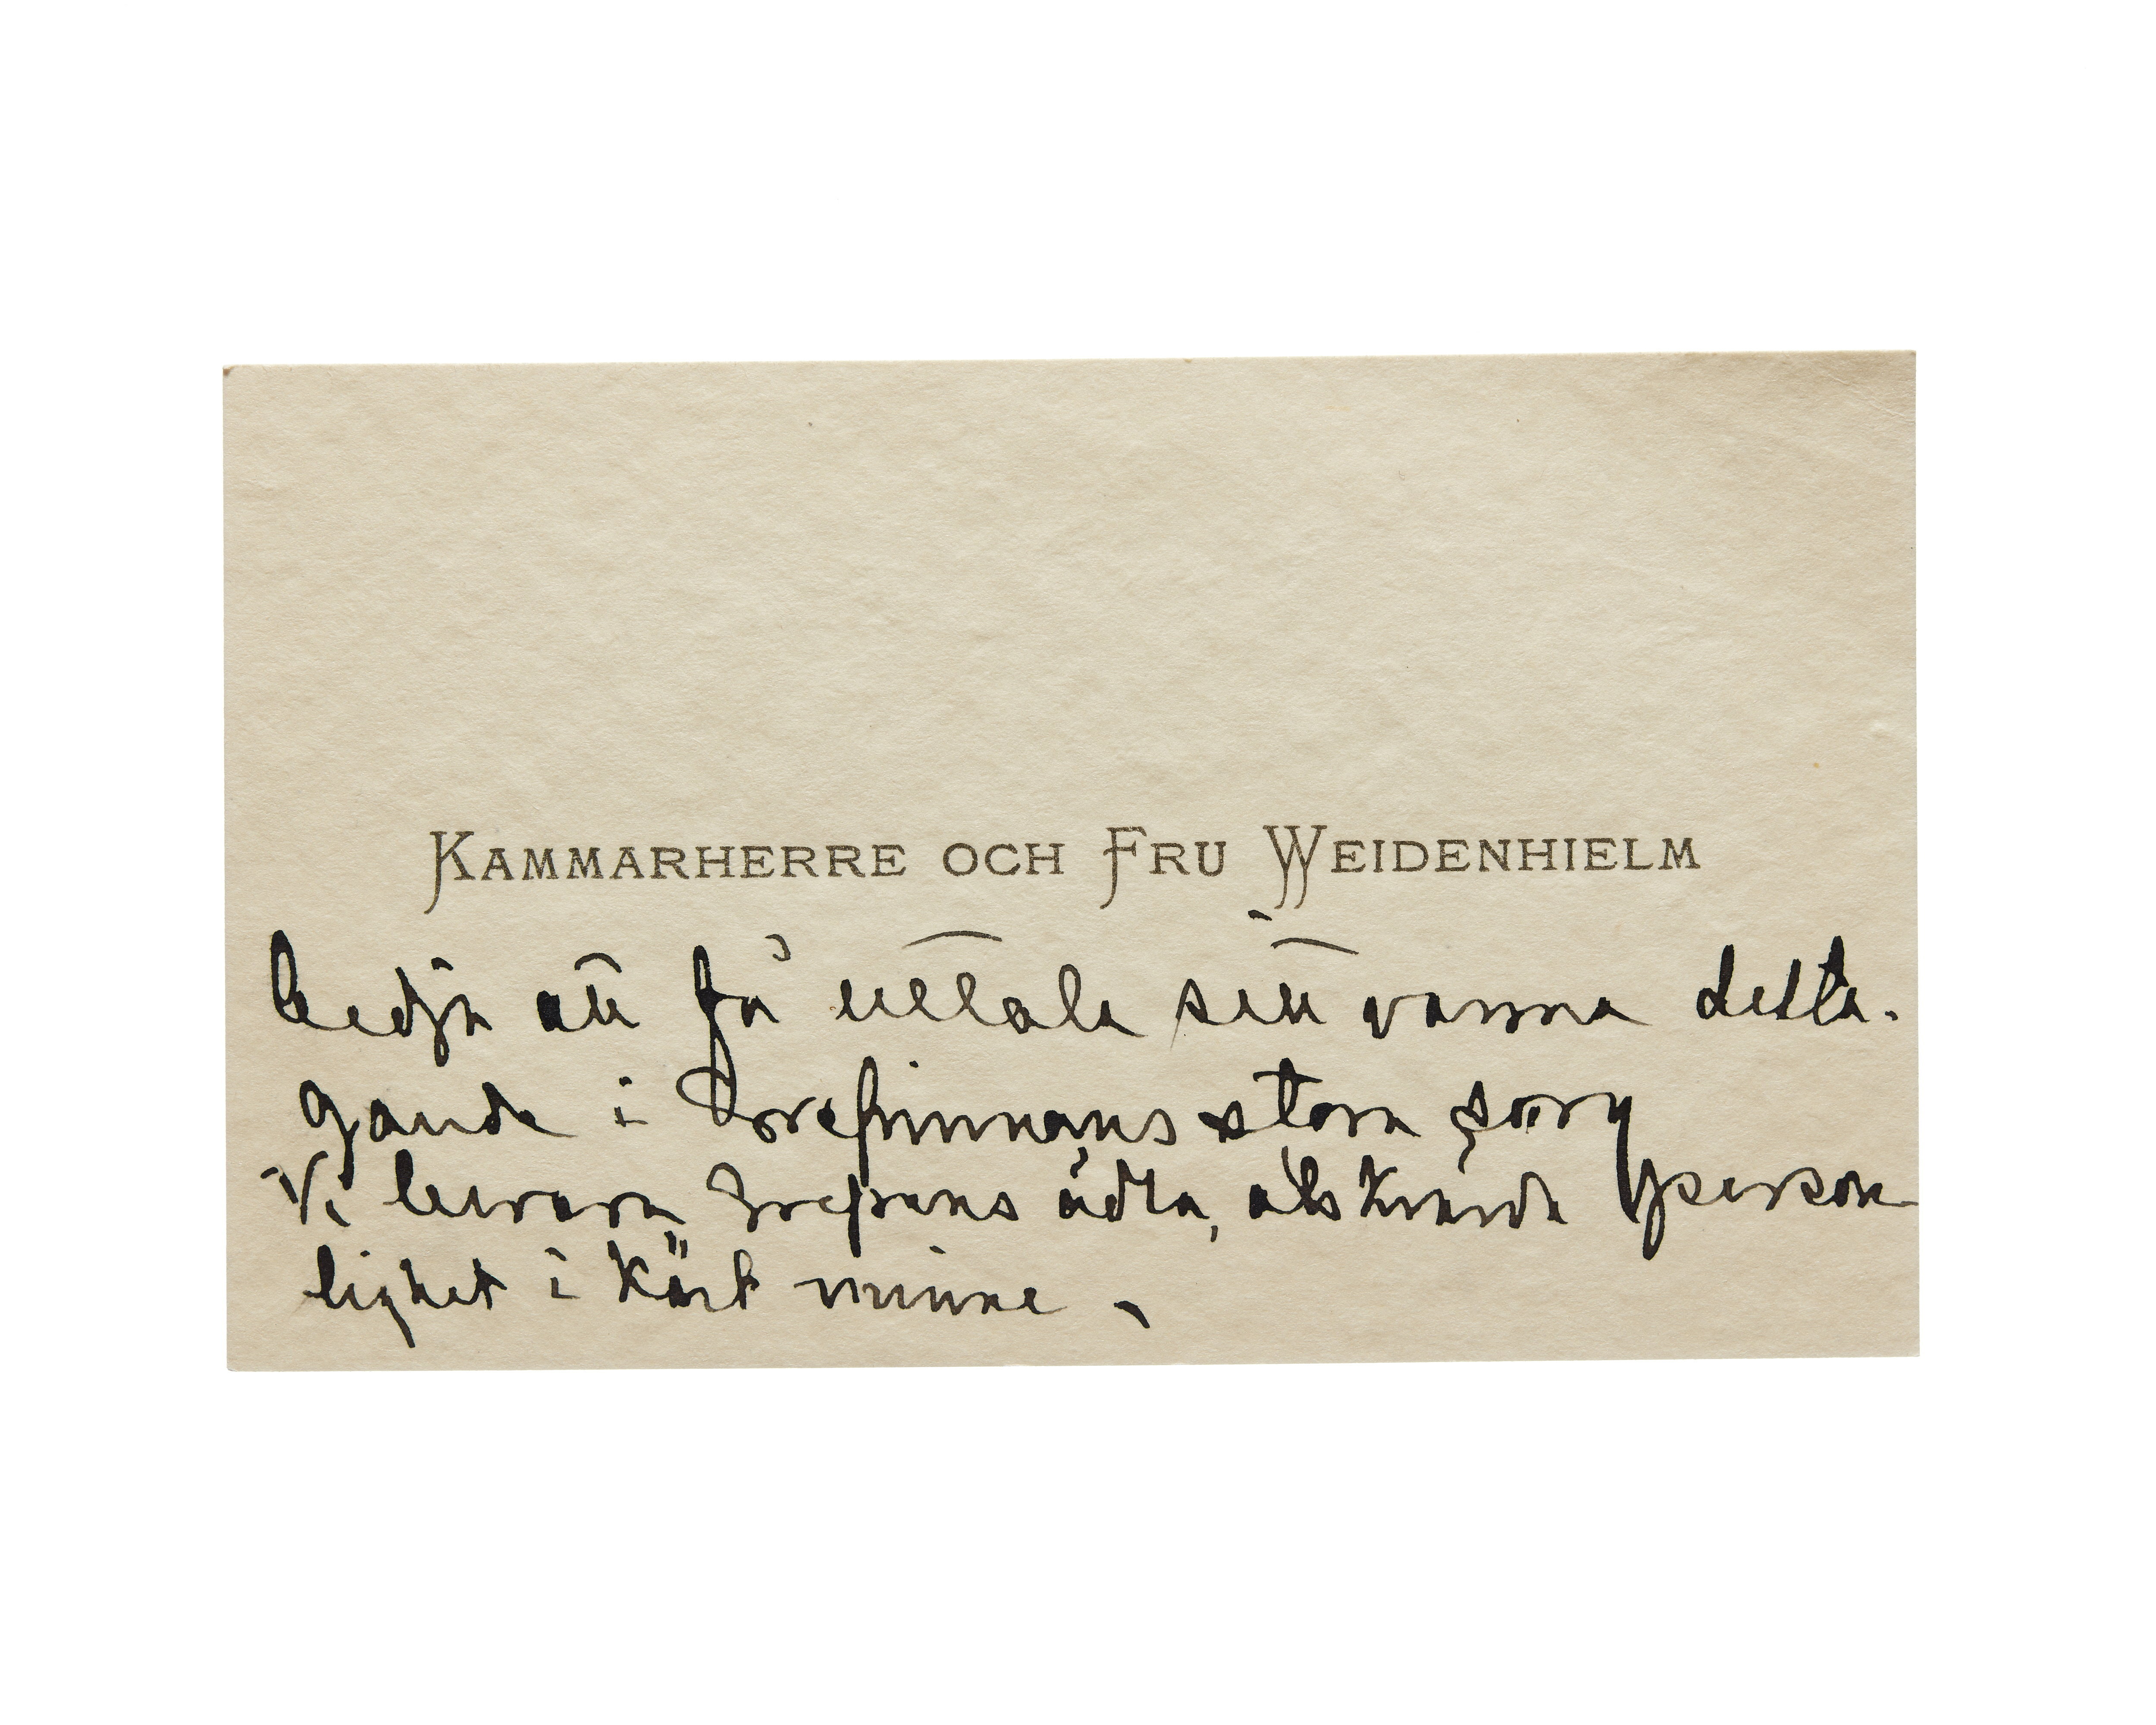 KAMMARHERRE OCH FRU WEIDENHIELM
bedja att få uttala sitt varma delta-
gande i Grefvinnans stora sorg
Vi bevara Grefvens ädla, älskvärda person
lighet i kärt minne.